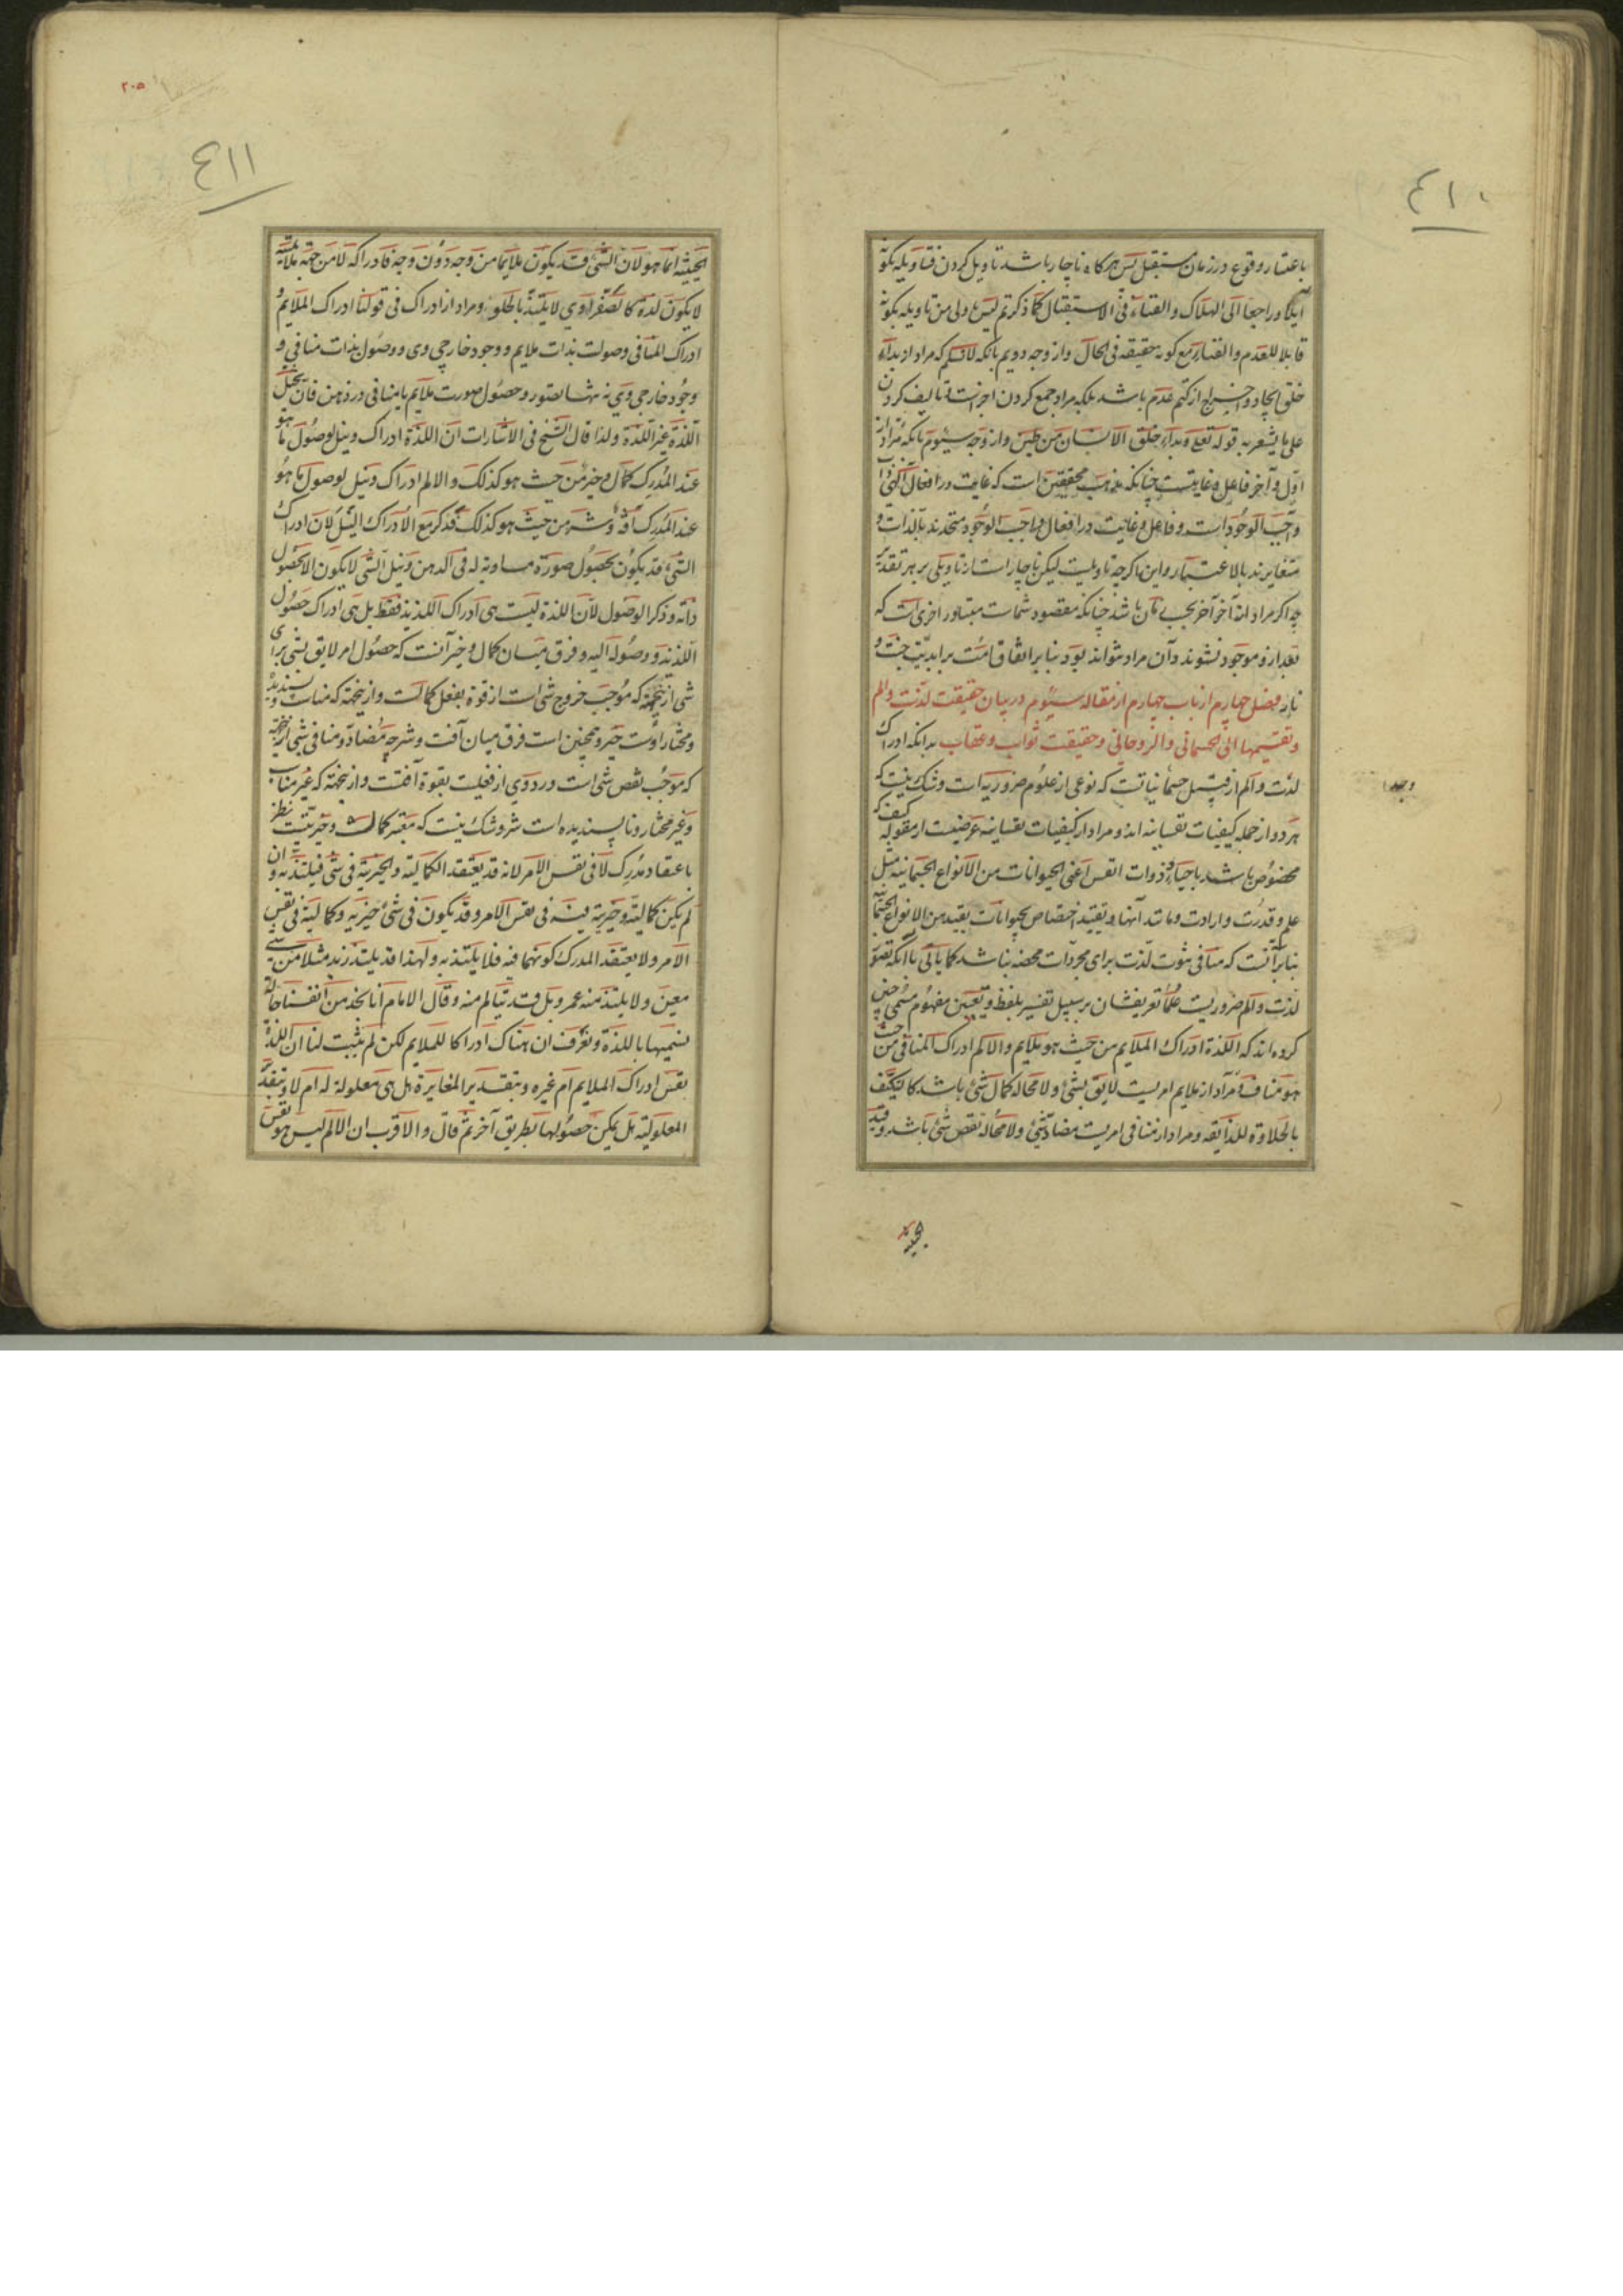 ٤١٠
باعتبار وقوع در زمان مستقبل پس هرگاه ناچار باشد تاویل کردن فتاویله بکونه
آیلا و راجعا الی الهلاک والفناء فی الاستقبال کما ذکرتم لیس اولی من تاویله بکونه
قابلا للعدم والفناء مع کونه حقیقه فی الحال و از وجه دویم بانکه لانسلم که مراد از بداء
خلق ایجاد و اخراج از کتم عدم باشد بلکه مراد جمع کردن اجزاست و تالیف کردن
علی ما یشعر به قوله تعه وبداء خلق الانسان من طین و از وجه سیوم بانکه مراد از
اول و آخر فاعل و غایتست چنانکه مذهب محققین است که غایت در افعال الهی ذات
واجب الوجود است و فاعل و غایت در افعال واجب الوجود متحدند بالذات و
متغایرند بالاعتبار و این اگرچه تاویلست لیکن ناچار است از تاویلی بر هر تقدیر
چه اگر مراد از آخر آخر بحسب زمان باشد چنانکه مقصود شماست متبادر آخری است که
بعد از و موجود نشوند و آن مراد نتواند بود بنابر اتفاق امت بر ابدیت جنت و
نار فصل چهارم از باب چهارم از مقاله سیوم در بیان حقیقت لذت والم
وتقسیمها الی الجسمانی والروحانی وحقیقت ثواب وعقاب بدانکه ادراک
لذت و الم از قبیل وجدانیاتست که نوعی از علوم ضروریه است و شک نیست که
وجدا
هر دو از جمله کیفیات نفسانیه اند و مراد از کیفیات نفسانیه عرضیست از مقوله کیف که
مخصوص باشد باحیاء و ذوات انفس اعنی الحیوانات من الانواع الجسمانیه مثل
علم و قدرت و ارادت و مانند آنها و تقیید اختصاص بحیوانات بقید من الانواع الجسمانیه
بنابر آنست که منافی ثبوت لذت برای مجردات محضه نباشد کما یاتی با آنکه تصور
لذت و الم ضروریست علما تعریفشان بر سبیل تفسیر بلفظ و تعیین مفهوم مسمی چنین
کرده اند که اللذة ادراک الملایم من حیث هو ملایم والالم ادراک المنافی من حیث
هو مناف و مراد از ملایم امریست لایق بشیء و لامحاله کمال شیء باشد کالتکیف
بالحلاوة للذایقه و مراد از منافی امریست مضاد شیء و لامحاله نقص شیء باشد و قید
الحیثیة
٢٠٥
٤١١
الحیثیه انما هو لان الشیء قد یکون ملایما من وجه دون وجه فادراکه لا من جهة ملایمته
لا یکون لذة کالصفراوی لا یلتذ بالحلو و مراد از ادراک فی قولنا ادراک الملایم و
ادراک المنافی وصولست بذات ملایم و وجود خارجی وی و وصول بذات منافی و
وجود خارجی وی نه تنها تصور و حصول صورت ملایم یا منافی در ذهن فان تخیل
اللذة غیر اللذة ولذا قال الشیخ فی الاشارات ان اللذة ادراک و نیل لوصول ما هو
عند المدرک کمال و خیر من حیث هو کذلک والالم ادراک و نیل لوصول ما هو
عند المدرک آفة و شر من حیث هو کذلک فذکر مع الادراک النیل لان ادراک
الشیء قد یکون بحصول صورة مساویة له فی الذهن و نیل الشی لا یکون الا بحصول
ذاته و ذکر الوصول لان اللذة لیست هی ادراک اللذیذ فقط بل هی ادراک حصول
اللذیذ و وصوله الیه و فرق میان کمال و خیر آنست که حصول امر لایق بشی برای
شی از اینجهة که موجب خروج شی است از قوة بفعل کمالست و از اینجهة که مناسب و پسندیده
و مختار اوست خیر و همچنین است فرق میان آفت و شر چه مضاد و منافی شی از اینجهة
که موجب نقص شی است ورد وی از فعلیت بقوة آفتست و از اینجهة که غیر مناسب
و غیر مختار و ناپسندیده است شر و شک نیست که معتبر کمالیت و خیریتست بنظر
باعتقاد مدرک لا فی نفس الامر لانه قد یعتقد الکمالیة والخیریة فی شی فیلتذ به و ان
لم یکن کمالیة و خیریة فیه فی نفس الامر و قد یکون فی شیء خیریة و کمالیة فی نفس
الامر ولا یعتقد المدرک کونهما فیه فلا یلتذ به و لهذا قد یلتذ زید مثلا من شیء
معین ولا یلتذ منه عمرو بل قد یتالم منه و قال الامام انا نجد من انفسنا حالة
نسمیها باللذة و نعرف ان هناک ادراکا للملایم لکن لم یثبت لنا ان اللذة
نفس ادراک الملایم ام غیره و بتقدیر المغایرة هل هی معلولة له ام لا و بتقدیر
المعلولیة هل یمکن حصولها بطریق آخر ثم قال والاقرب ان الالم لیس هو نفس